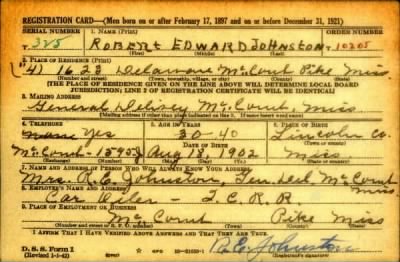 REGISTRATION CARD—(Men born on or after February 17, 1897 and on or before December 31, 1921)
SERIAL NUMBER 1. NAME (Print) ORDER NUMBER
325 ROBERT EDWARD JOHNSTON 10205
(First) (Middle) (Last)
2. PLACE OF RESIDENCE (Print)
1623 Delaware McComb Pike Miss
(Number and street) (Town, township, village, or city) (County) (State)
[THE PLACE OF RESIDENCE GIVEN ON THE LINE ABOVE WILL DETERMINE LOCAL BOARD
JURISDICTION; LINE 2 OF REGISTRATION CERTIFICATE WILL BE IDENTICAL]
3. MAILING ADDRESS
General Delivery McComb, Miss
(Mailing address if other than place indicated on line 2. If same insert word same)
4. TELEPHONE 5. AGE IN YEARS 6. PLACE OF BIRTH
Yes 40 Lincoln Co.
DATE OF BIRTH (Town or county)
McComb- Aug 18 1902 Miss
(Exchange) (Number) (Mo.) (Day) (Yr.) (State or country)
7. NAME AND ADDRESS OF PERSON WHO WILL ALWAYS KNOW YOUR ADDRESS
Mrs. R. E. Johnston, Gen Del McComb Miss
8. EMPLOYER'S NAME AND ADDRESS
Car Oiler - I. C. R. R.
9. PLACE OF EMPLOYMENT OR BUSINESS
McComb Pike Miss
(Number and street or R. F. D. number) (Town) (County) (State)
I AFFIRM THAT I HAVE VERIFIED ABOVE ANSWERS AND THAT THEY ARE TRUE.
D. S. S. Form 1
(Revised 1-1-42) (over) R.E. Johnston